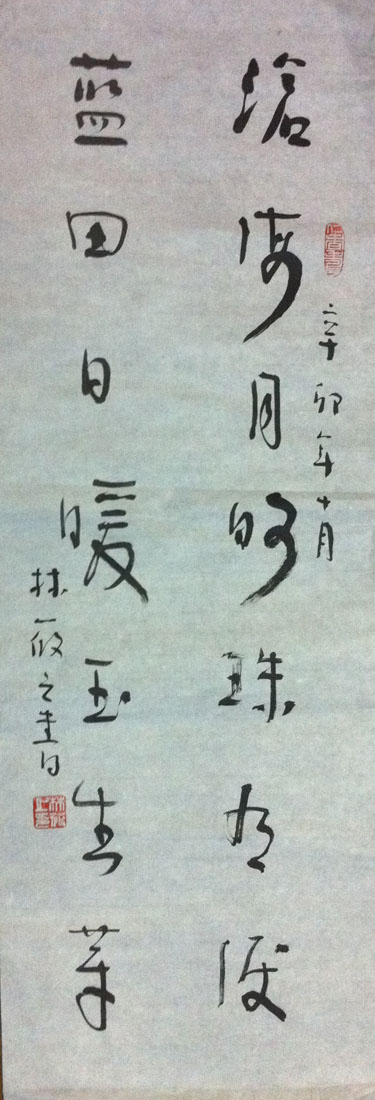 滄海月明珠有淚
辛卯年十月
藍田日暖玉生華
林筱之書